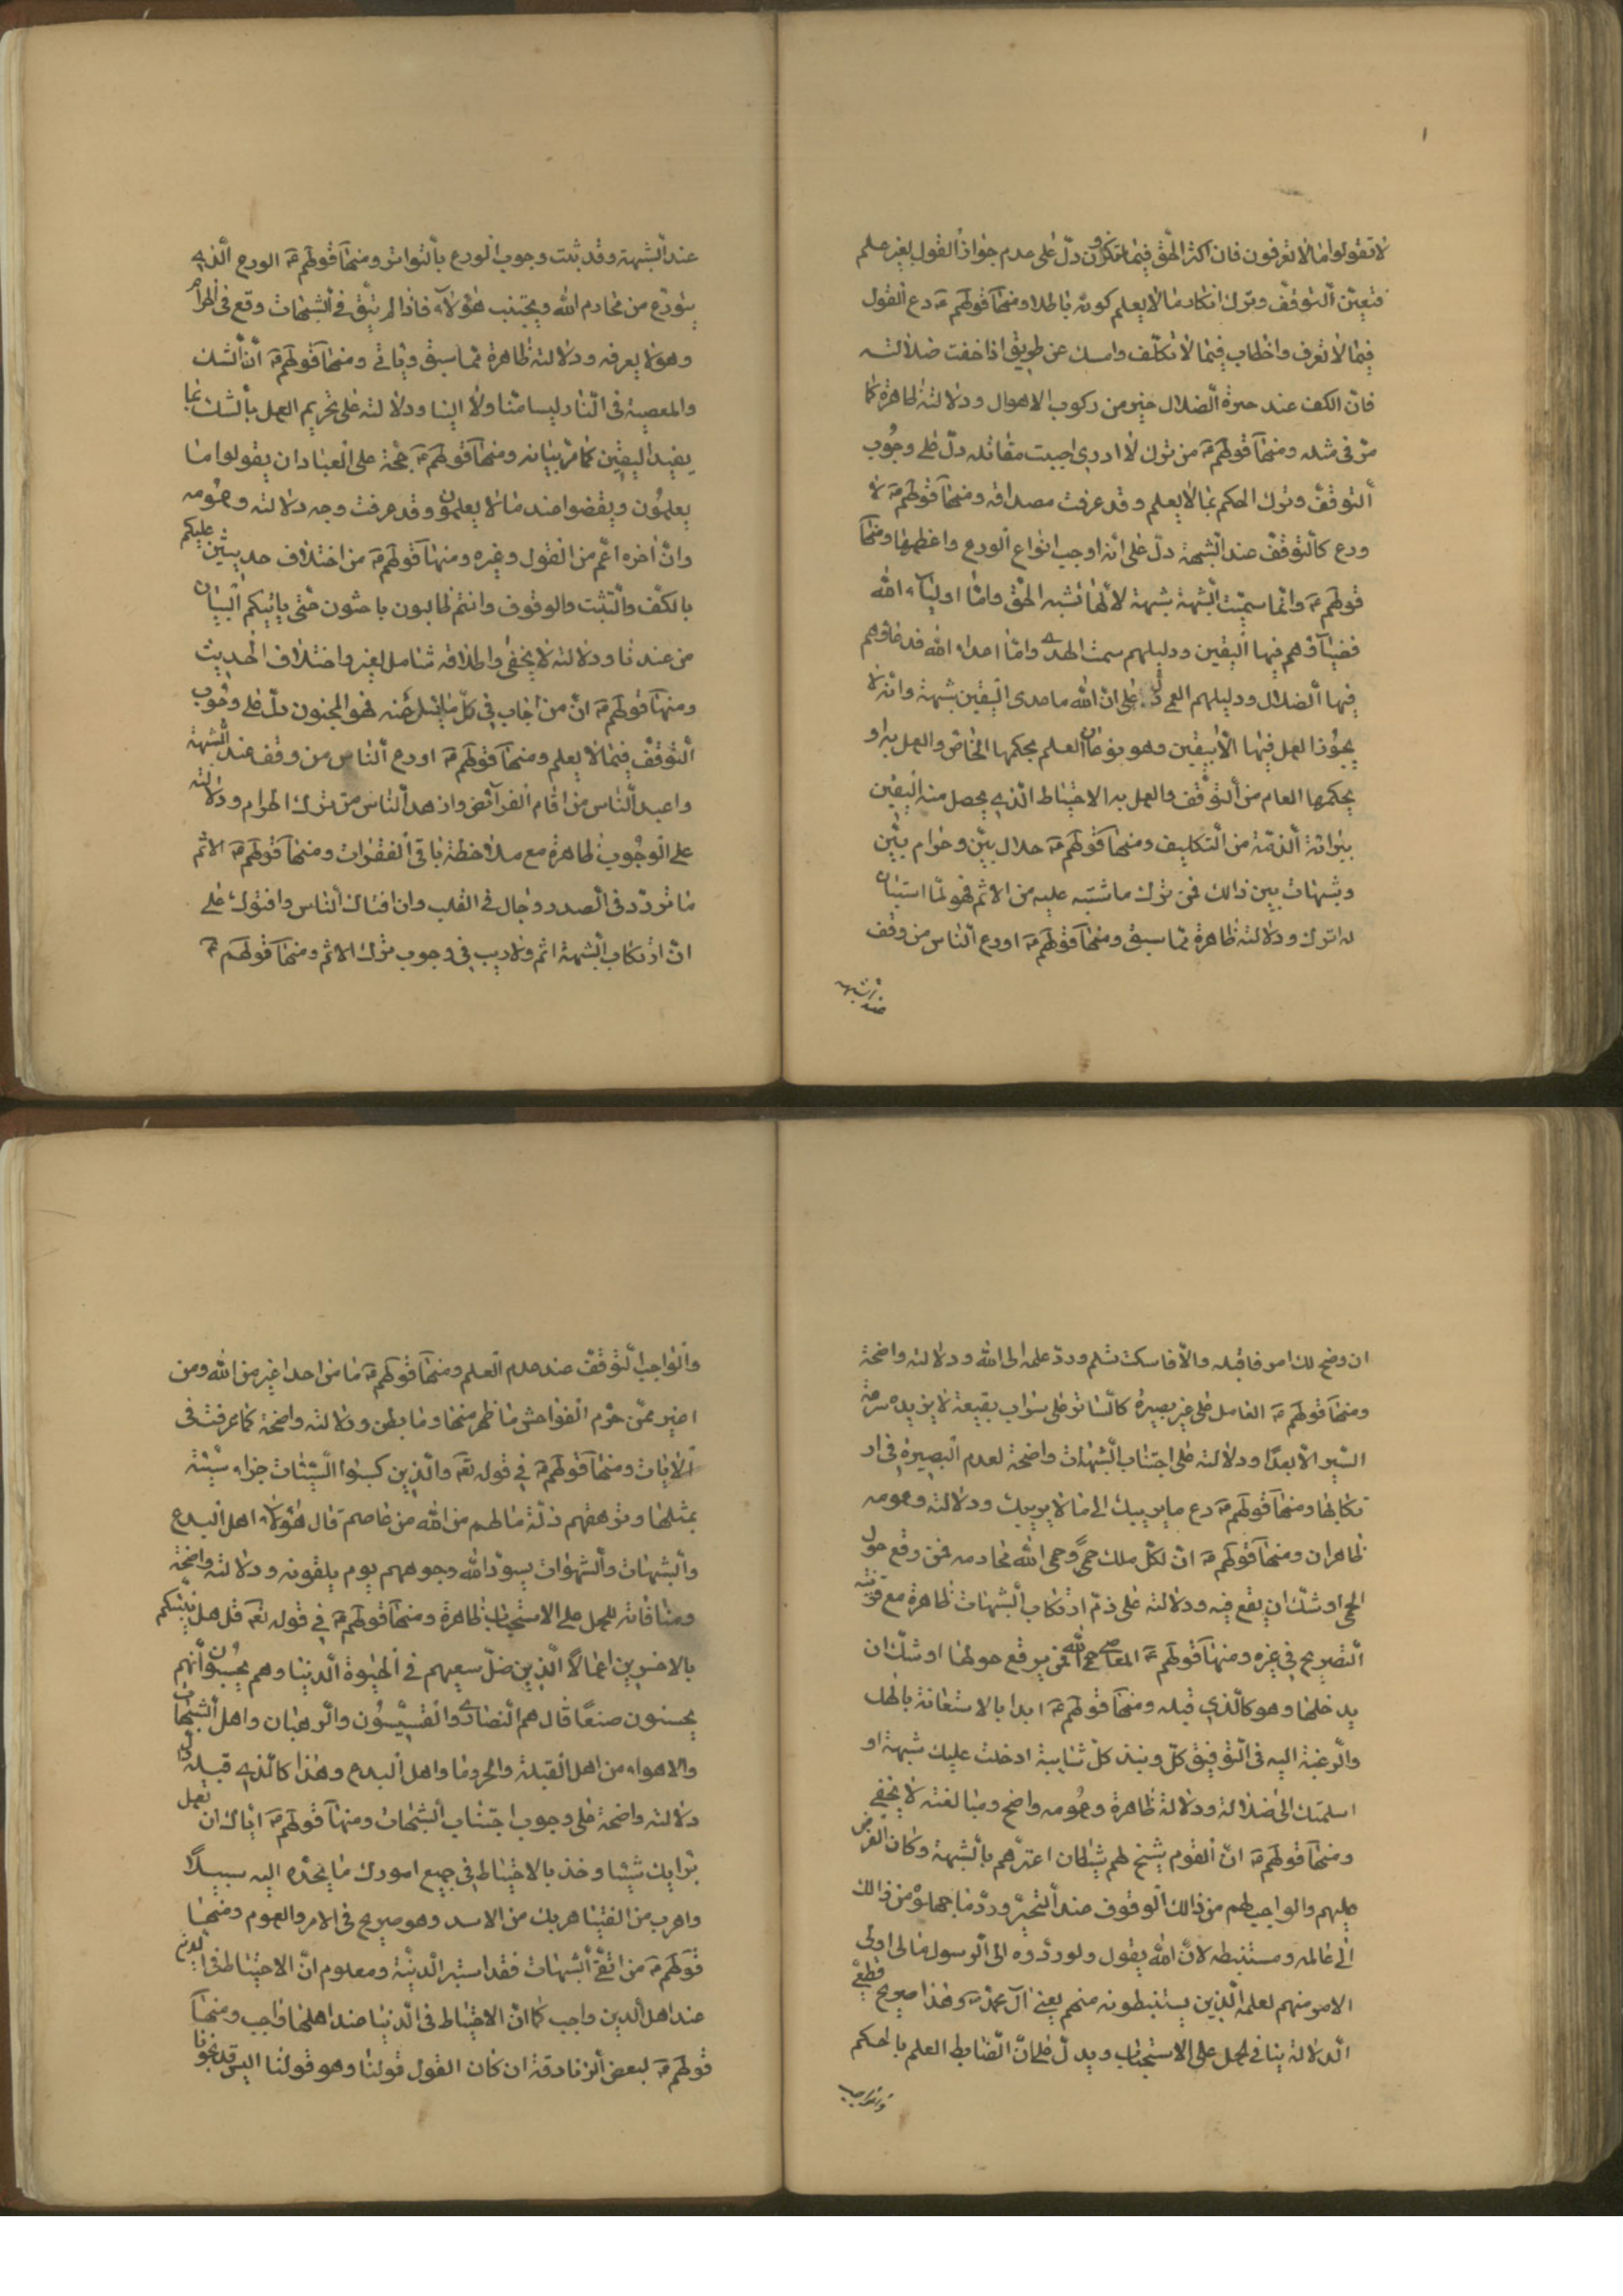 لا تقولوا ما لا تعرفون فان اكثر الحق فيما تنكرون دلّ على عدم جواز القول بغير علم
فتعيّن التوقّف وترك انكار ما لا يعلم كونه باطلا ومنها قولهم ع دع القول
فيما لا تعرف والخطاب فيما لا تكلّف وامسك عن طريق اذا خفت ضلالته
فانّ الكفّ عند حيرة الضلال خير من ركوب الاهوال ودلالته ظاهرة كما
مرّ في مثله ومنها قولهم ع من ترك لا ادري اصيبت مقاتله دلّ على وجوب
التوقّف وترك الحكم بما لا يعلم وقد عرفت مصداقه ومنها قولهم ع لا
ورع كالتوقّف عند الشبهة دلّ على انّه اوجب انواع الورع واعظمها ومنها
قولهم ع وانّما سمّيت الشبهة شبهة لانّها تشبه الحق وامّا اولياء الله
فضياؤهم فيها اليقين ودليلهم سمت الهدى وامّا اعداء الله فدعاؤهم
فيها الضلال ودليلهم العمى دلّ على انّ الله ما عدى اليقين شبهة وانّه لا
يجوز العمل فيها الّا بيقين وهو نوعان العلم بحكمها الخاص والعمل به او
بحكمها العام من التوقّف والعمل به الاحتياط الذي يحصل منه اليقين
ببرائة الذمّة من التكليف ومنها قولهم ع حلال بيّن وحرام بيّن
وشبهات بين ذالك فمن ترك ما شتبه عليه من الاثم فهو لما استبان
له اترك ودلالته ظاهرة ممّا سبق ومنها قولهم ع اورع الناس من وقف
عند الشبهة
عند الشبهة وقد ثبت وجوب الورع بالتواتر ومنها قولهم ع الورع الّذي
يتورّع من محارم الله ويجتنب هؤلاء فاذا لم يتّق في الشبهات وقع في الحرام
وهو لا يعرفه ودلالته ظاهرة ممّا سبق ويأتي ومنها قولهم ع انّ الشك
والمعصية في النار ليسا منّا ولا الينا ودلالته على تحريم العمل بالشك بما
يفيد اليقين كما مرّ بيانه ومنها قولهم ع حجّة على العباد ان يقولوا ما
يعلمون ويقفوا عند ما لا يعلمون وقد عرفت وجه دلالته وعمومه
وانّ اخره اعمّ من القول وغيره ومنها قولهم ع من اختلاف حديثين عليكم
بالكفّ والتثبّت والوقوف وانتم طالبون باحثون حتى ياتيكم البيان
من عندنا ودلالته لا يخفى واطلاقه شامل لغير اختلاف الحديث
ومنها قولهم ع انّ من اجاب في كلّ ما يسئل عنه فهو المجنون دلّ على وجوب
التوقّف فيما لا يعلم ومنها قولهم ع اورع الناس من وقف عند الشبهة
واعبد الناس من اقام الفرائض وازهد الناس من ترك الحرام ودلالته
على الوجوب ظاهرة مع ملاحظة باقي الفقرات ومنها قولهم ع الاثم
ما تردّد في الصدر وجال في القلب وان افتاك الناس وافتوك على
انّ ارتكاب الشبهة اثم ولا ريب في وجوب ترك الاثم ومنها قولهم ع
ان وضح لك امر فاقبله والّا فاسكت تسلم وردّ علمه الى الله ودلالته واضحة
ومنها قولهم ع العامل على غير بصيرة كالسائر على سراب بقيعة لا يزيده سرعة
السير الّا بعدا ودلالته على اجتناب الشبهات واضحة لعدم البصيرة في ار
تكابها ومنها قولهم ع دع ما يريبك الى ما لا يريبك ودلالته وعمومه
ظاهران ومنها قولهم ع انّ لكلّ ملك حمى وحمى الله محارمه فمن وقع حول
الحمى اوشك ان يقع فيه ودلالته على ذمّ ارتكاب الشبهات ظاهرة مع قرينة
التصريح في غيره ومنها قولهم ع المعاصي حمى الله فمن يرقع حولها اوشك ان
يدخلها وهو كالذي قبله ومنها قولهم ع ابدا بالاستعانة بالهك
والرغبة اليه في التوفيق كلّ ونبذ كلّ شايبة ادخلت عليك شبهة او
اسلمتك الى ضلالة ودلالة ظاهرة وعمومه واضح ومبالغته لا يخفى
ومنها قولهم ع انّ القوم شيخ لهم شيطان اعترّهم بالشبهة وكان الفرض
عليهم والواجب لهم من ذالك الوقوف عند التحيّر وردّ ما جهلوه من ذالك
الى عالمه ومستنبطه لانّ الله يقول ولو ردّوه الى الرسول والى اولى
الامر منهم لعلمه الذين يستنبطونه منهم يعني آل محمّد وهذا صريح قطعيّ
الدلالة ينافي لحمل على الاستحباب ويدلّ على انّ الضابط العلم بالحكم
والواجب
والواجب التوقّف عند عدم العلم ومنها قولهم ع ما من احد اغير من الله ومن
اغير ممّن حرّم الفواحش ما ظهر منها وما بطن ودلالته واضحة كما عرفت في
الايات ومنها قولهم ع في قوله تع والذين كسبوا السّيّئات جزاء سيّئة
بمثلها وترهقهم ذلّة ما لهم من الله من عاصم قال هؤلاء اهل البدع
والشبهات والشهوات يسوّد الله وجوههم يوم يلقونه ودلالته واضحة
ومنافاته للحمل على الاستحباب ظاهرة ومنها قولهم ع في قوله تع قل هل ننبّئكم
بالاخسرين اعمالا الّذين ضلّ سعيهم في الحيوة الدنيا وهم يحسبون انّهم
يحسنون صنعا قال هم النصارى والقسّيسون والرهبان واهل الشبهات
والاهواء من اهل القبلة والحروما واهل البدع وهذا كالذي قبله دلّ
دلالته واضحة على وجوب اجتناب الشبهات ومنها قولهم ع اياك ان تعمل
برايك شيئا وخذ بالاحتياط في جميع امورك ما يجده اليه سبيلا
واهرب من الفتيا هربك من الاسد وهو صريح في الامر والعموم ومنها
قولهم ع من اتقى الشبهات فقد استبر الدنية ومعلوم انّ الاحتياط في الدين
عند اهل الدين واجب كما انّ الاحتياط في الدنيا عند اهلها واجب ومنها
قولهم ع لبعض الزنادقة ان كان القول قولنا وهو قولنا اليس قد نجونا